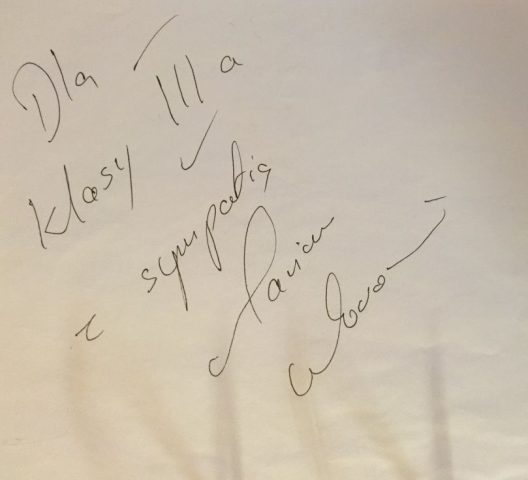 Dla
klasy III a
z sympatią